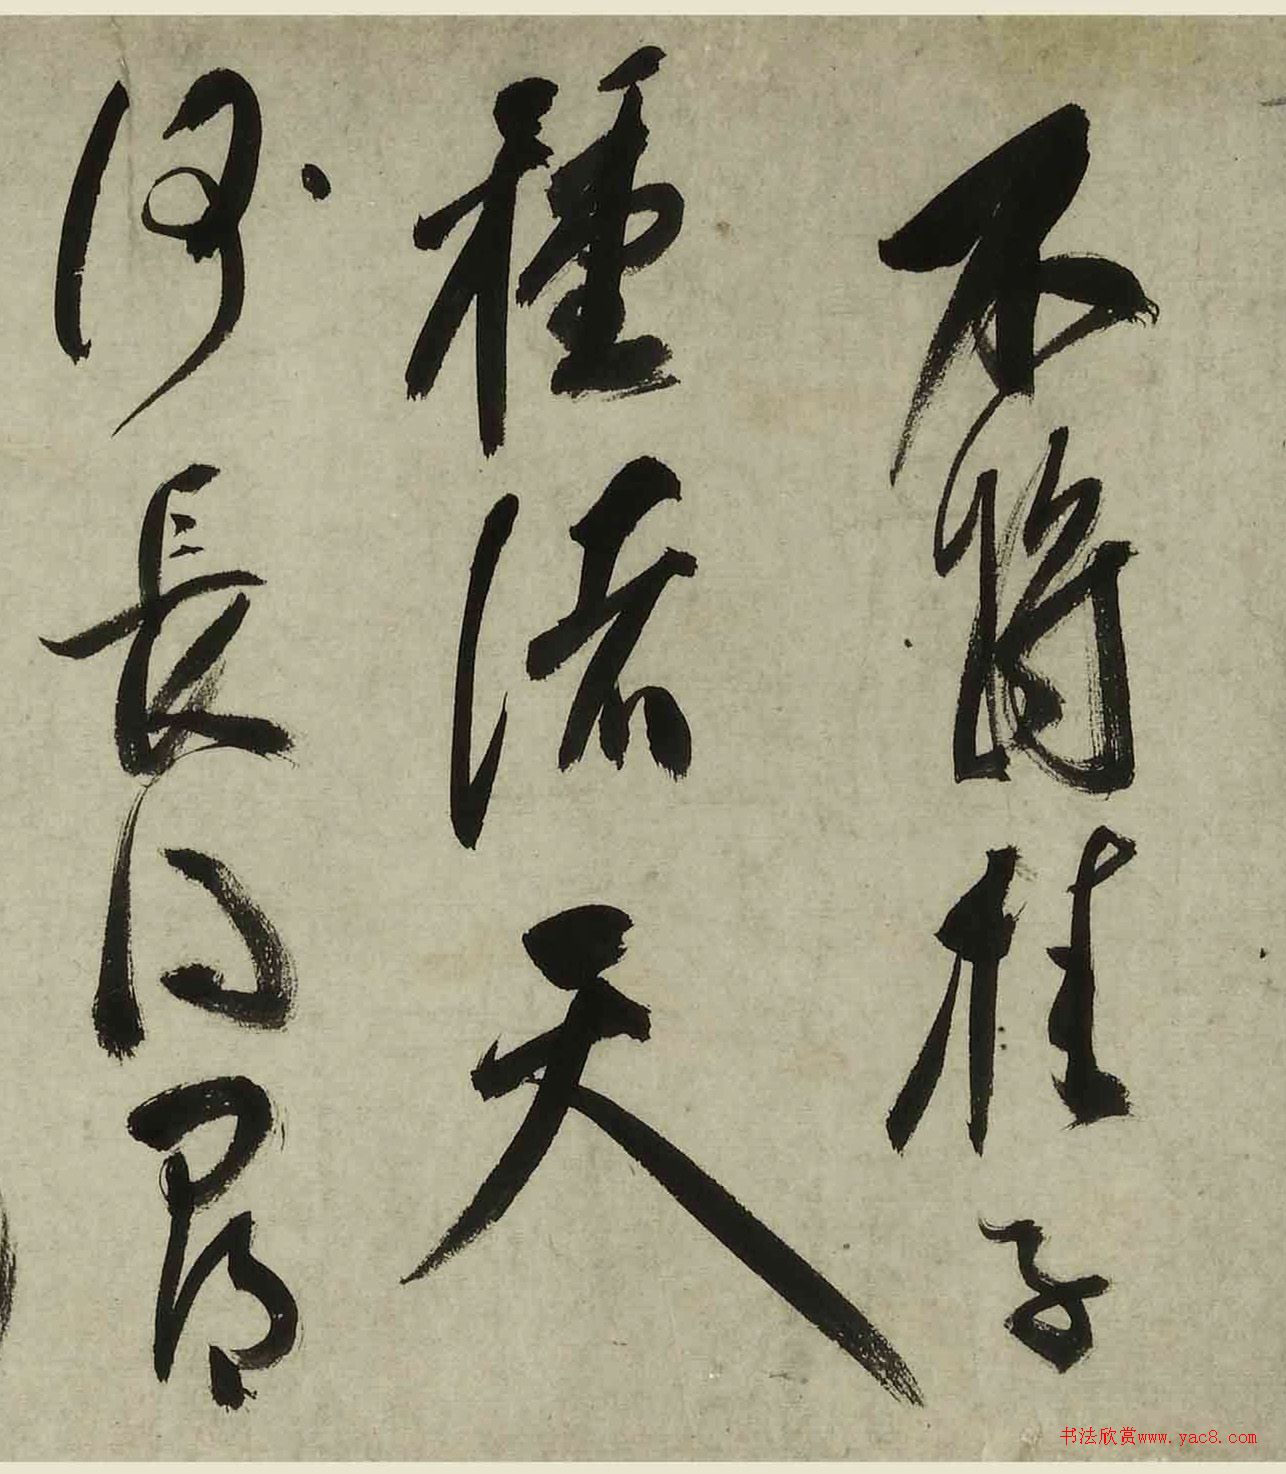 不將桂子
種諸天
何長得尋
书法欣赏www.yac8.com